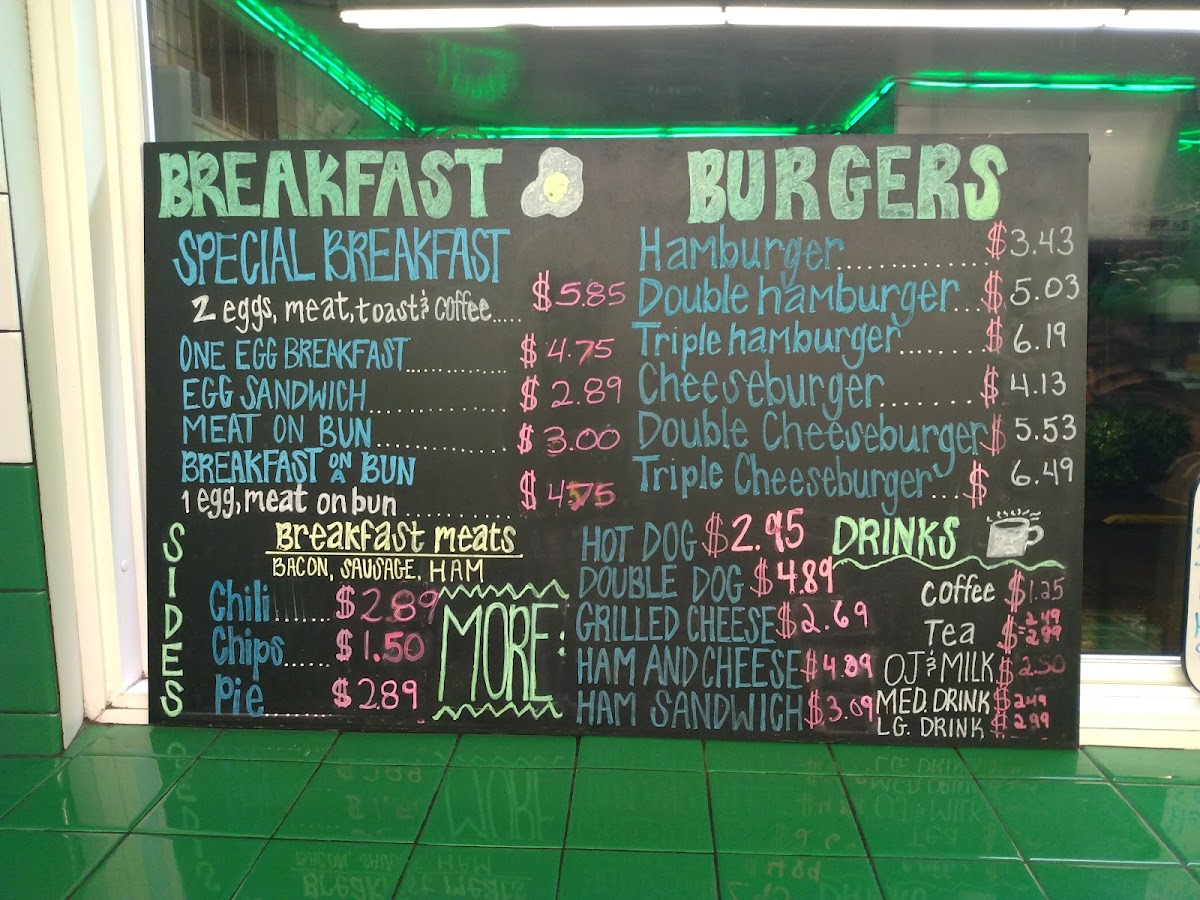 BREAKFAST
SPECIAL BREAKFAST
2 eggs, meat, toast & coffee..... $5.85
ONE EGG BREAKFAST............... $4.75
EGG SANDWICH.................... $2.89
MEAT ON BUN................... $3.00
BREAKFAST ON A BUN
1 egg, meat on bun ............... $4.75
Breakfast meats
BACON, SAUSAGE, HAM
SIDES
Chili....... $2.89
Chips...... $1.50
Pie $2.89
BURGERS
Hamburger................ $3.43
Double hamburger... $5.03
Triple hamburger......... $6.19
Cheeseburger....... $4.13
Double Cheeseburger $5.53
Triple Cheeseburger... $6.49
MORE:
HOT DOG $2.95
DOUBLE DOG $4.89
GRILLED CHEESE $2.69
HAM AND CHEESE $4.09
HAM SANDWICH $3.09
DRINKS
coffee $1.25
Tea $2.49
$2.99
OJ & MILK $2.50
MED. DRINK $2.49
LG. DRINK $2.99